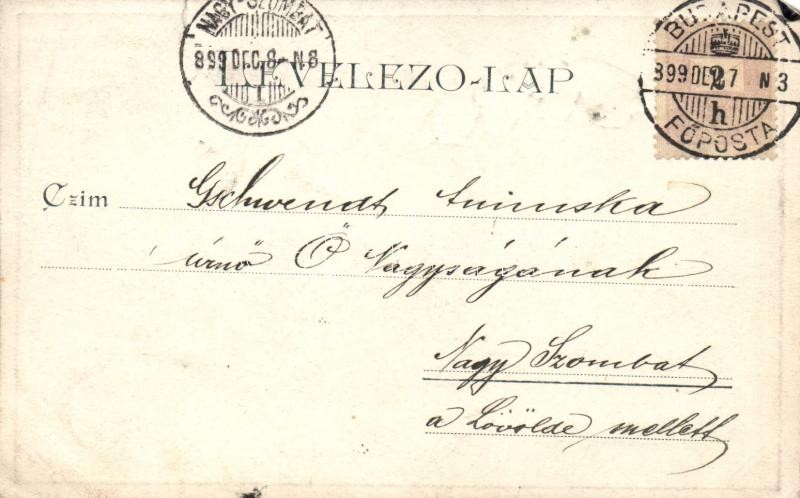 NAGY-SZOMBAT
899 DEC 8 N8
BUDAPEST
899 DEC 7 N3
2
h
FŐPOSTA
LEVELEZŐ-LAP
Czim Gschwendt Aninnska
úrnő Ő Nagyságának
Nagy Szombat
a Lövölde mellett